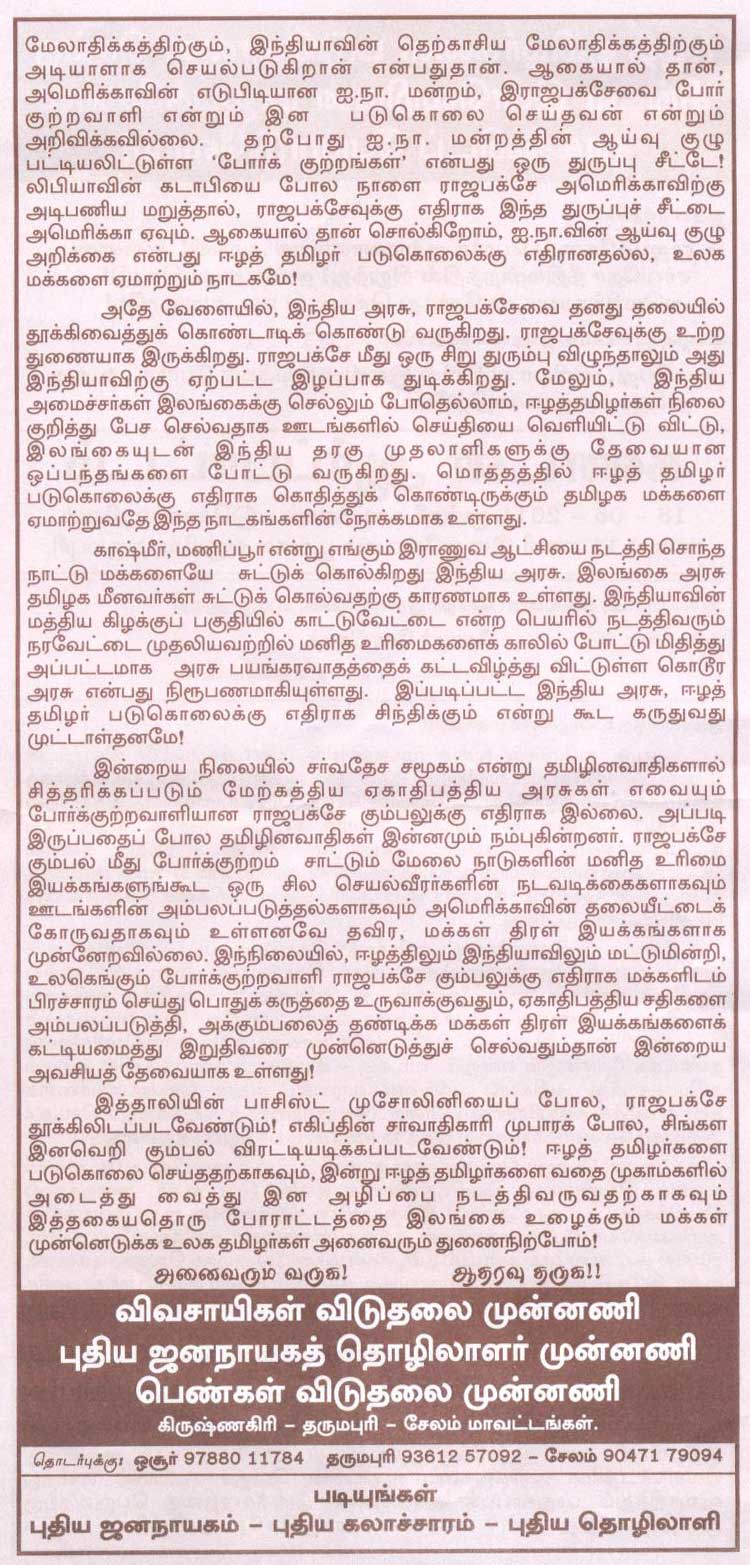 மேலாதிக்கத்திற்கும், இந்தியாவின் தெற்காசிய மேலாதிக்கத்திற்கும்
அடியாளாக செயல்படுகிறான் என்பதுதான். ஆகையால் தான்,
அமெரிக்காவின் எடுபிடியான ஐ.நா. மன்றம், இராஜபக்சேவை போர்
குற்றவாளி என்றும் இன படுகொலை செய்தவன் என்றும்
அறிவிக்கவில்லை. தற்போது ஐ.நா. மன்றத்தின் ஆய்வு குழு
பட்டியலிட்டுள்ள ‘போர்க் குற்றங்கள்’ என்பது ஒரு துருப்பு சீட்டே!
லிபியாவின் கடாபியை போல நாளை ராஜபக்சே அமெரிக்காவிற்கு
அடிபணிய மறுத்தால், ராஜபக்சேவுக்கு எதிராக இந்த துருப்புச் சீட்டை
அமெரிக்கா ஏவும். ஆகையால் தான் சொல்கிறோம், ஐ.நா.வின் ஆய்வு குழு
அறிக்கை என்பது ஈழத் தமிழர் படுகொலைக்கு எதிரானதல்ல, உலக
மக்களை ஏமாற்றும் நாடகமே!
அதே வேளையில், இந்திய அரசு, ராஜபக்சேவை தனது தலையில்
தூக்கிவைத்துக் கொண்டாடிக் கொண்டு வருகிறது. ராஜபக்சேவுக்கு உற்ற
துணையாக இருக்கிறது. ராஜபக்சே மீது ஒரு சிறு துரும்பு விழுந்தாலும் அது
இந்தியாவிற்கு ஏற்பட்ட இழப்பாக துடிக்கிறது. மேலும், இந்திய
அமைச்சர்கள் இலங்கைக்கு செல்லும் போதெல்லாம், ஈழத்தமிழர்கள் நிலை
குறித்து பேச செல்வதாக ஊடகங்களில் செய்தியை வெளியிட்டு விட்டு,
இலங்கையுடன் இந்திய தரகு முதலாளிகளுக்கு தேவையான
ஒப்பந்தங்களை போட்டு வருகிறது. மொத்தத்தில் ஈழத் தமிழர்
படுகொலைக்கு எதிராக கொதித்துக் கொண்டிருக்கும் தமிழக மக்களை
ஏமாற்றுவதே இந்த நாடகங்களின் நோக்கமாக உள்ளது.
காஷ்மீர், மணிப்பூர் என்று எங்கும் இராணுவ ஆட்சியை நடத்தி சொந்த
நாட்டு மக்களையே சுட்டுக் கொல்கிறது இந்திய அரசு. இலங்கை அரசு
தமிழக மீனவர்கள் சுட்டுக் கொல்வதற்கு காரணமாக உள்ளது. இந்தியாவின்
மத்திய கிழக்குப் பகுதியில் காட்டுவேட்டை என்ற பெயரில் நடத்திவரும்
நரவேட்டை முதலியவற்றில் மனித உரிமைகளைக் காலில் போட்டு மிதித்து
அப்பட்டமாக அரசு பயங்கரவாதத்தைக் கட்டவிழ்த்து விட்டுள்ள கொடூர
அரசு என்பது நிரூபணமாகியுள்ளது. இப்படிப்பட்ட இந்திய அரசு, ஈழத்
தமிழர் படுகொலைக்கு எதிராக சிந்திக்கும் என்று கூட கருதுவது
முட்டாள்தனமே!
இன்றைய நிலையில் சர்வதேச சமூகம் என்று தமிழினவாதிகளால்
சித்தரிக்கப்படும் மேற்கத்திய ஏகாதிபத்திய அரசுகள் எவையும்
போர்க்குற்றவாளியான ராஜபக்சே கும்பலுக்கு எதிராக இல்லை. அப்படி
இருப்பதைப் போல தமிழினவாதிகள் இன்னமும் நம்புகின்றனர். ராஜபக்சே
கும்பல் மீது போர்க்குற்றம் சாட்டும் மேலை நாடுகளின் மனித உரிமை
இயக்கங்களுங்கூட ஒரு சில செயல்வீரர்களின் நடவடிக்கைகளாகவும்
ஊடங்களின் அம்பலப்படுத்தல்களாகவும் அமெரிக்காவின் தலையீட்டைக்
கோருவதாகவும் உள்ளனவே தவிர, மக்கள் திரள் இயக்கங்களாக
முன்னேறவில்லை. இந்நிலையில், ஈழத்திலும் இந்தியாவிலும் மட்டுமின்றி,
உலகெங்கும் போர்க்குற்றவாளி ராஜபக்சே கும்பலுக்கு எதிராக மக்களிடம்
பிரச்சாரம் செய்து பொதுக் கருத்தை உருவாக்குவதும், ஏகாதிபத்திய சதிகளை
அம்பலப்படுத்தி, அக்கும்பலைத் தண்டிக்க மக்கள் திரள் இயக்கங்களைக்
கட்டியமைத்து இறுதிவரை முன்னெடுத்துச் செல்வதும்தான் இன்றைய
அவசியத் தேவையாக உள்ளது!
இத்தாலியின் பாசிஸ்ட் முசோலினியைப் போல, ராஜபக்சே
தூக்கிலிடப்படவேண்டும்! எகிப்தின் சர்வாதிகாரி முபாரக் போல, சிங்கள
இனவெறி கும்பல் விரட்டியடிக்கப்படவேண்டும்! ஈழத் தமிழர்களை
படுகொலை செய்ததற்காகவும், இன்று ஈழத் தமிழர்களை வதை முகாம்களில்
அடைத்து வைத்து இன அழிப்பை நடத்திவருவதற்காகவும்
இத்தகையதொரு போராட்டத்தை இலங்கை உழைக்கும் மக்கள்
முன்னெடுக்க உலக தமிழர்கள் அனைவரும் துணைநிற்போம்!
அனைவரும் வருக! ஆதரவு தருக!!
விவசாயிகள் விடுதலை முன்னணி
புதிய ஜனநாயகத் தொழிலாளர் முன்னணி
பெண்கள் விடுதலை முன்னணி
கிருஷ்ணகிரி – தருமபுரி – சேலம் மாவட்டங்கள்.
தொடர்புக்கு: ஒசூர் 97880 11784 தருமபுரி 93612 57092 – சேலம் 90471 79094
படியுங்கள்
புதிய ஜனநாயகம் – புதிய கலாச்சாரம் – புதிய தொழிலாளி